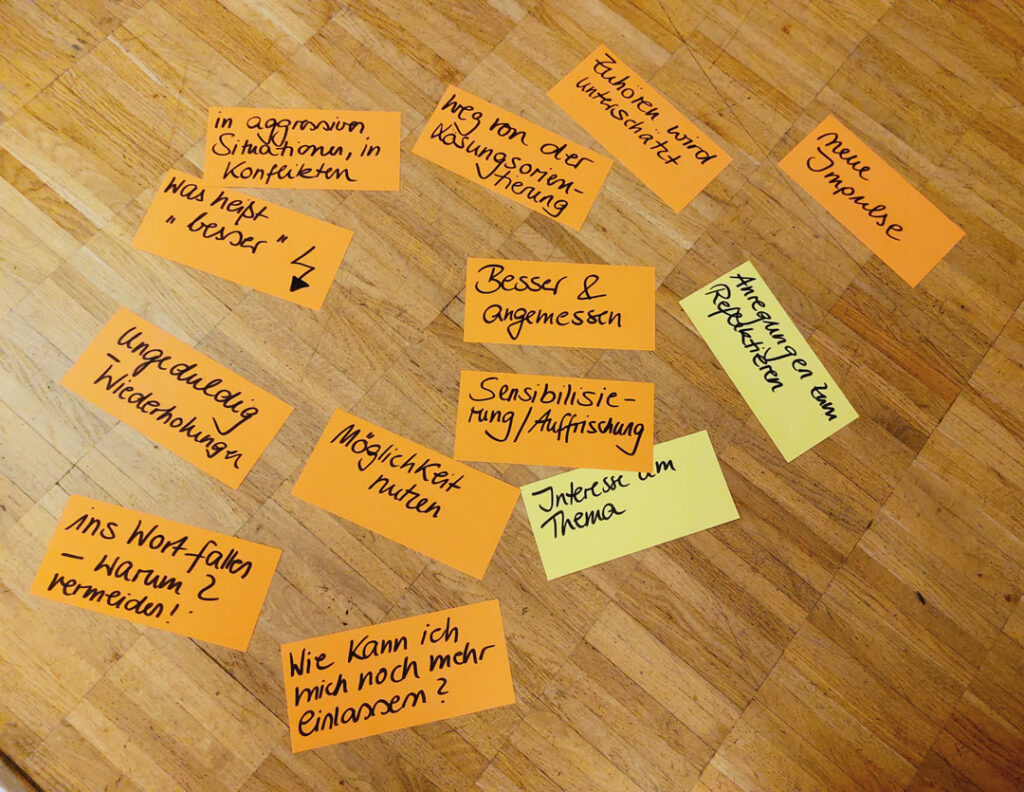 in aggressiven
Situationen, in
Konflikten
weg von der
Lösungsorien-
tierung
Zuhören wird
unterschätzt
neue
Impulse
was heißt
"besser"
Besser &
angemessen
Anregungen zum
Reflektieren
Ungeduldig
- Wiederholungen
Sensibilisie-
rung/Auffrischung
Möglichkeit
nutzen
Interesse am
Thema
ins Wort fallen
- warum?
vermeiden!
Wie kann ich
mich noch mehr
einlassen?